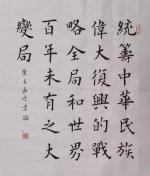 統籌中華民族
偉大復興的戰
略全局和世界
百年未有之大
變局